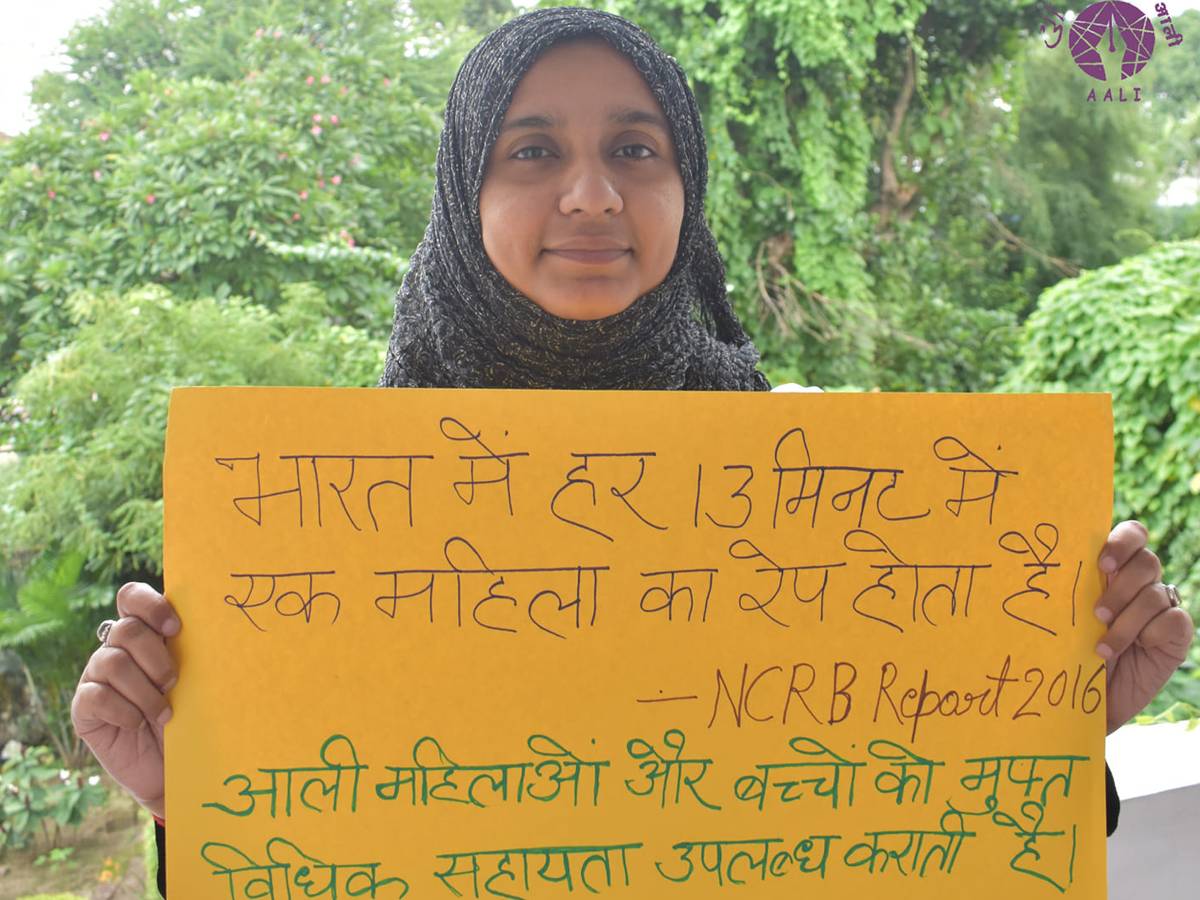 आली
AALI
भारत में हर 13 मिनट में
एक महिला का रेप होता है।
— NCRB Report 2016
आली महिलाओं और बच्चों को मुफ्त
विधिक सहायता उपलब्ध कराती है।